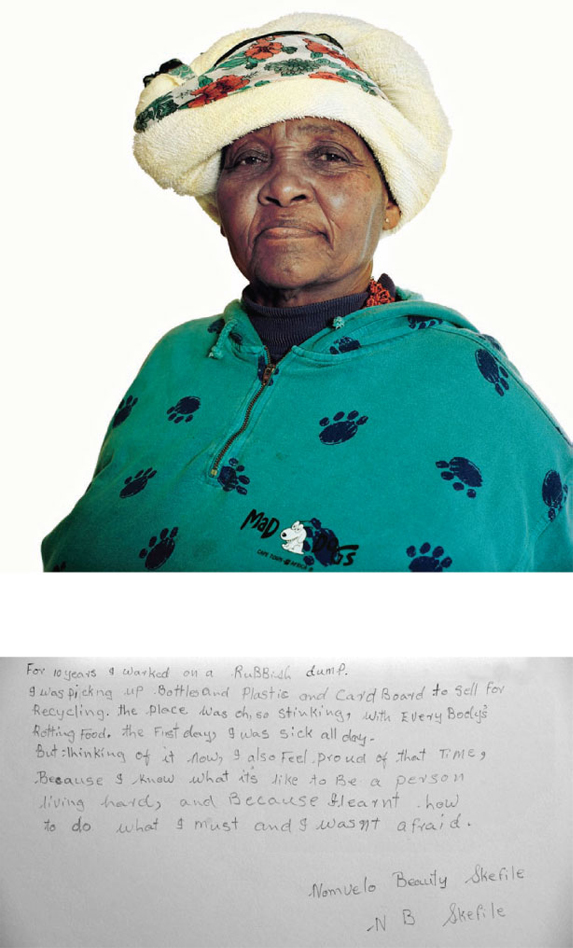 MAD DOGS
CAPE TOWN
For 10 years I worked on a RuBBish dump.
I was picking up Bottles and Plastic and Card Board to Sell For
Recycling. the Place was oh, so stinking, with Every Body's
Rotting Food. the First day, I was sick all day.
But thinking of it now, I also Feel Proud of that Time,
Because I know what its like to Be a person
living hard, and Because I learnt how
to do what I must and I wasnt afraid.
Nomvelo Beauty Skefile
N B Skefile